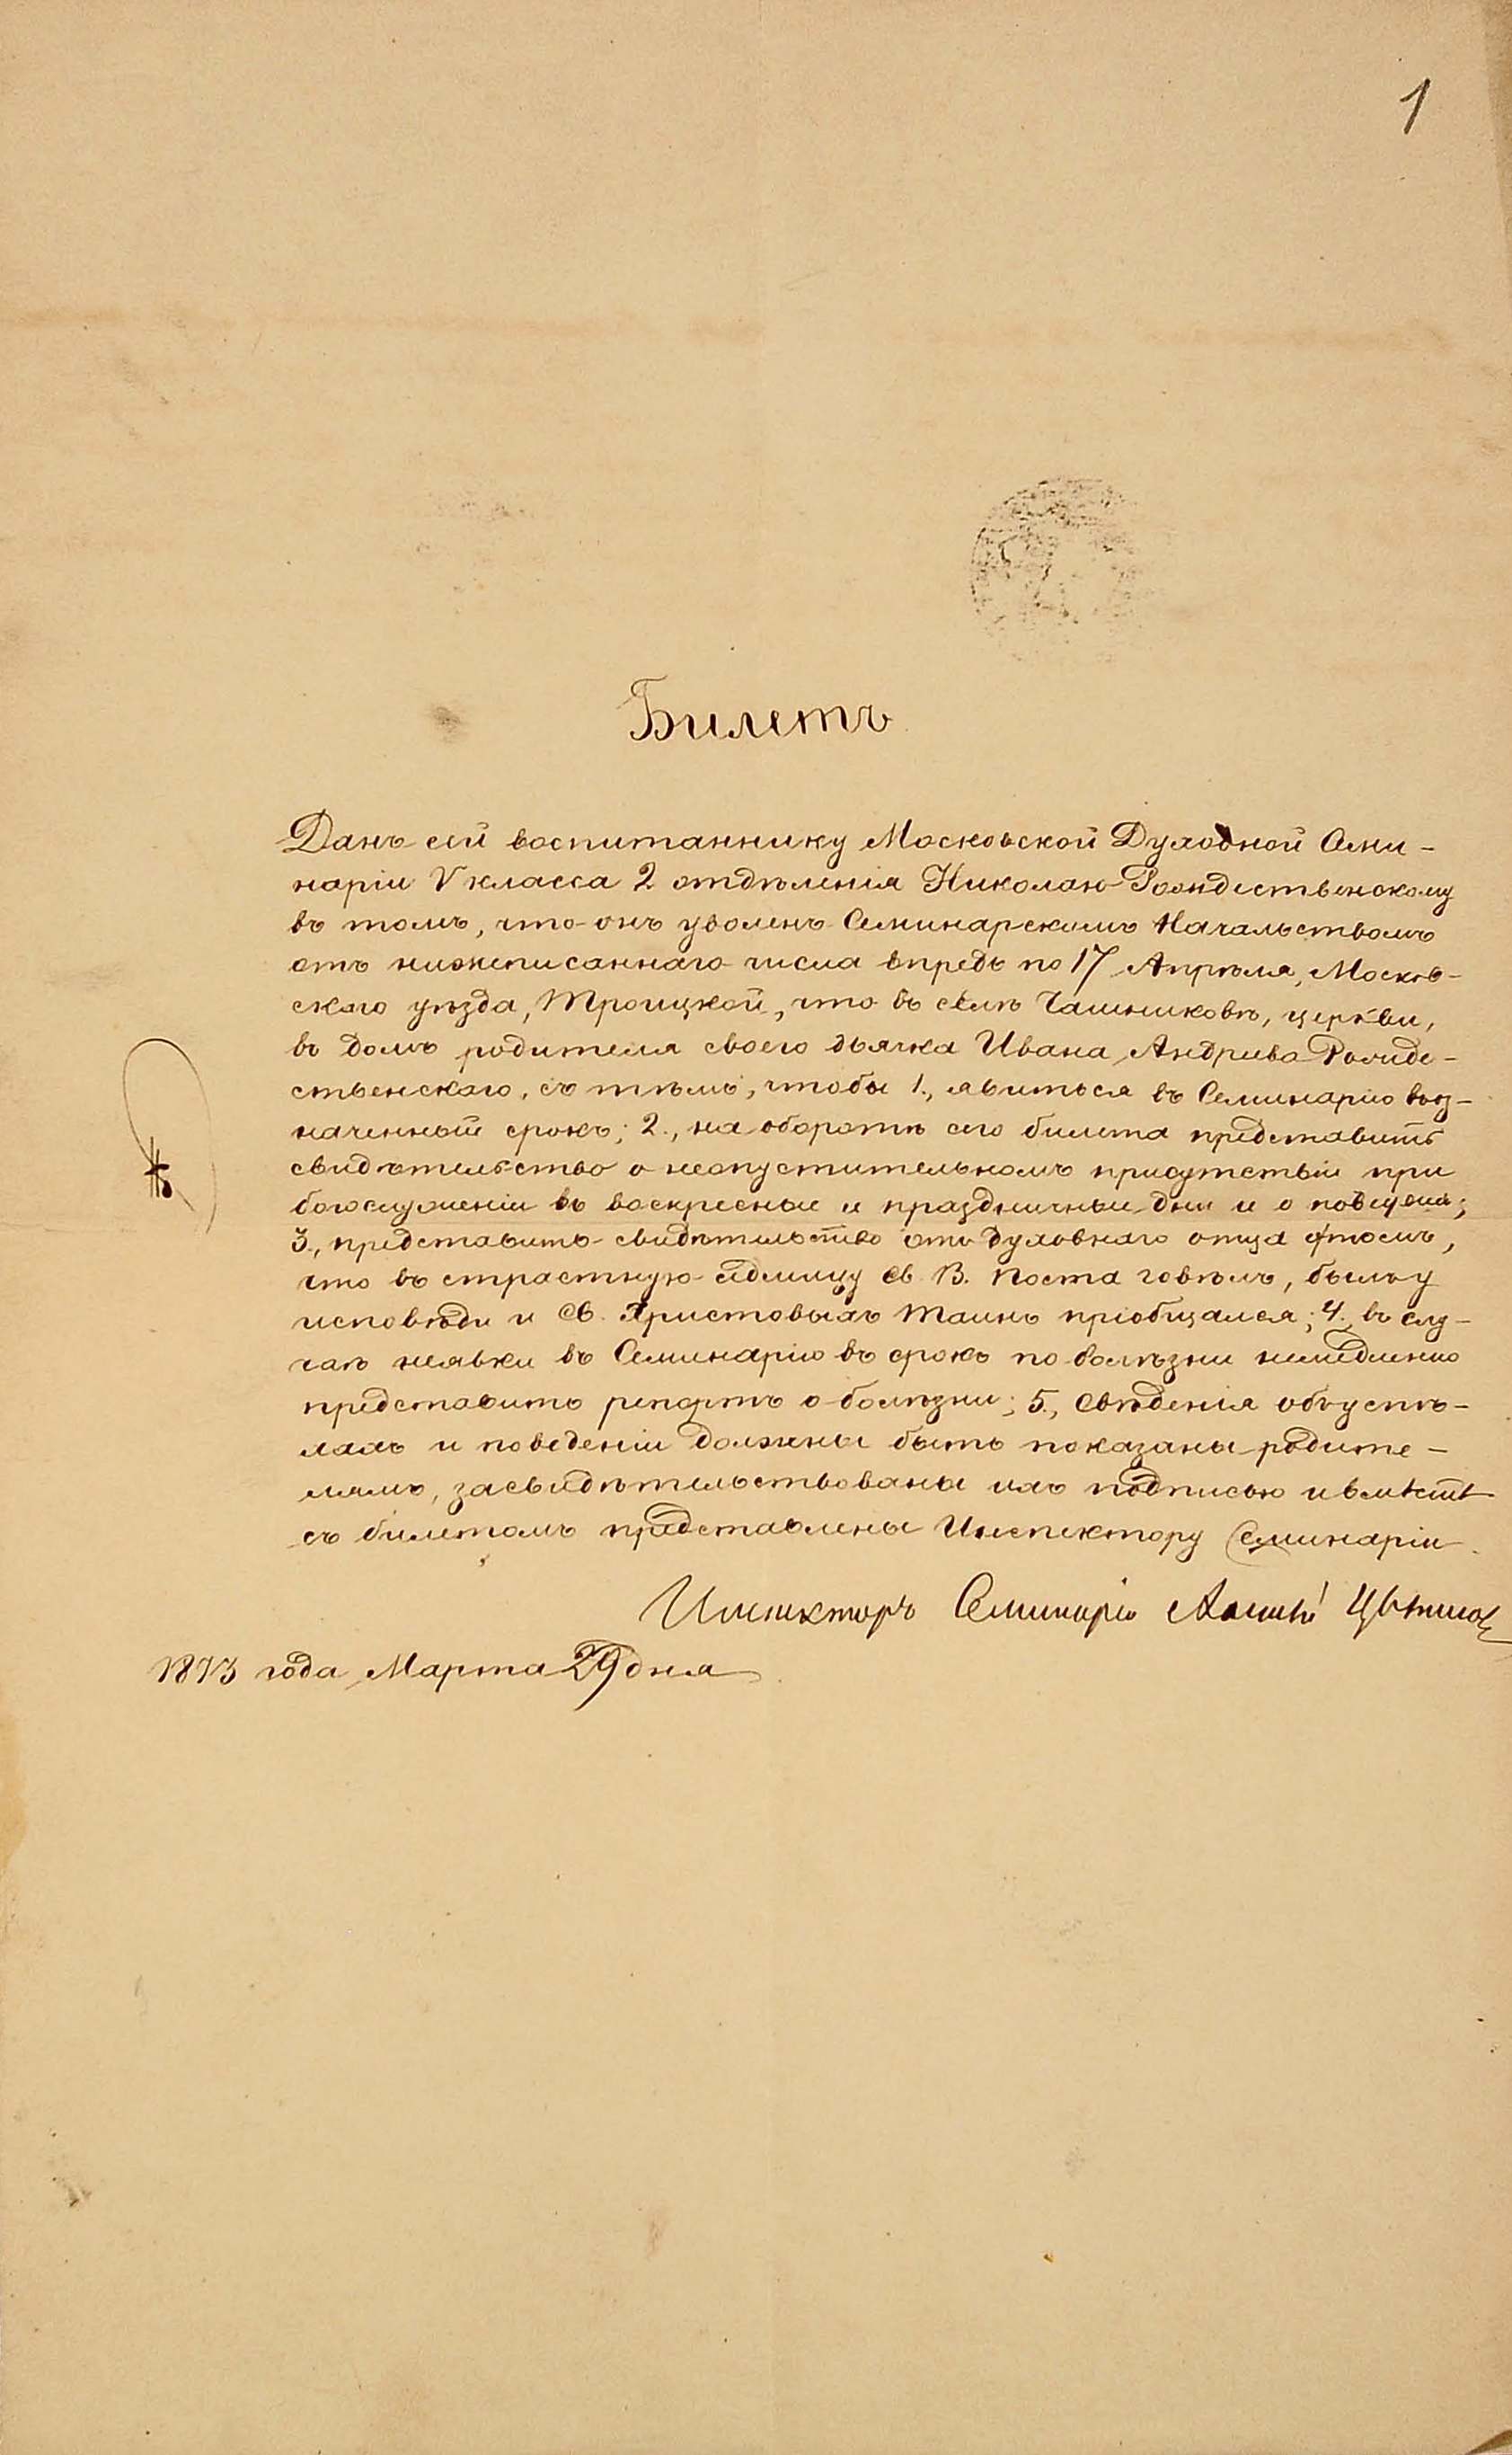 1
Билетъ
Данъ сей воспитаннику Московской Духовной Семи-
наріи V класса 2 отдѣленія Николаю Рождественскому
въ томъ, что онъ уволенъ Семинарскимъ Начальствомъ
отъ нижеписаннаго числа впредь по 17 Апрѣля, Москов-
скаго уѣзда, Троицкой, что въ селѣ Чашниковѣ, церкви,
въ домъ родителя своего дьячка Ивана Андреева Рожде-
ственскаго, съ тѣмъ, чтобы 1., явиться въ Семинарію въ оз-
наченный срокъ; 2., на оборотѣ сего билета представить
свидѣтельство о неопустительномъ присутствіи при
богослуженіи въ воскресные и праздничные дни и о поведеніи;
3., представить свидѣтельство отъ духовнаго отца о томъ,
что въ страстную седмицу Св. В. Поста говѣлъ, былъ у
исповѣди и Св. Христовыхъ Таинъ пріобщался; 4., въ слу-
чаѣ неявки въ Семинарію въ срокъ по болѣзни немедленно
представить репортъ о болѣзни; 5., Свѣденія объ успѣ-
хахъ и поведеніи должны быть показаны родите-
лямъ, засвидѣтельствованы ихъ подписью и вмѣстѣ
съ билетомъ представлены Инспектору Семинаріи.
Инспекторъ Семинаріи Алексѣй Цвѣтков
1873 года Марта 29 дня